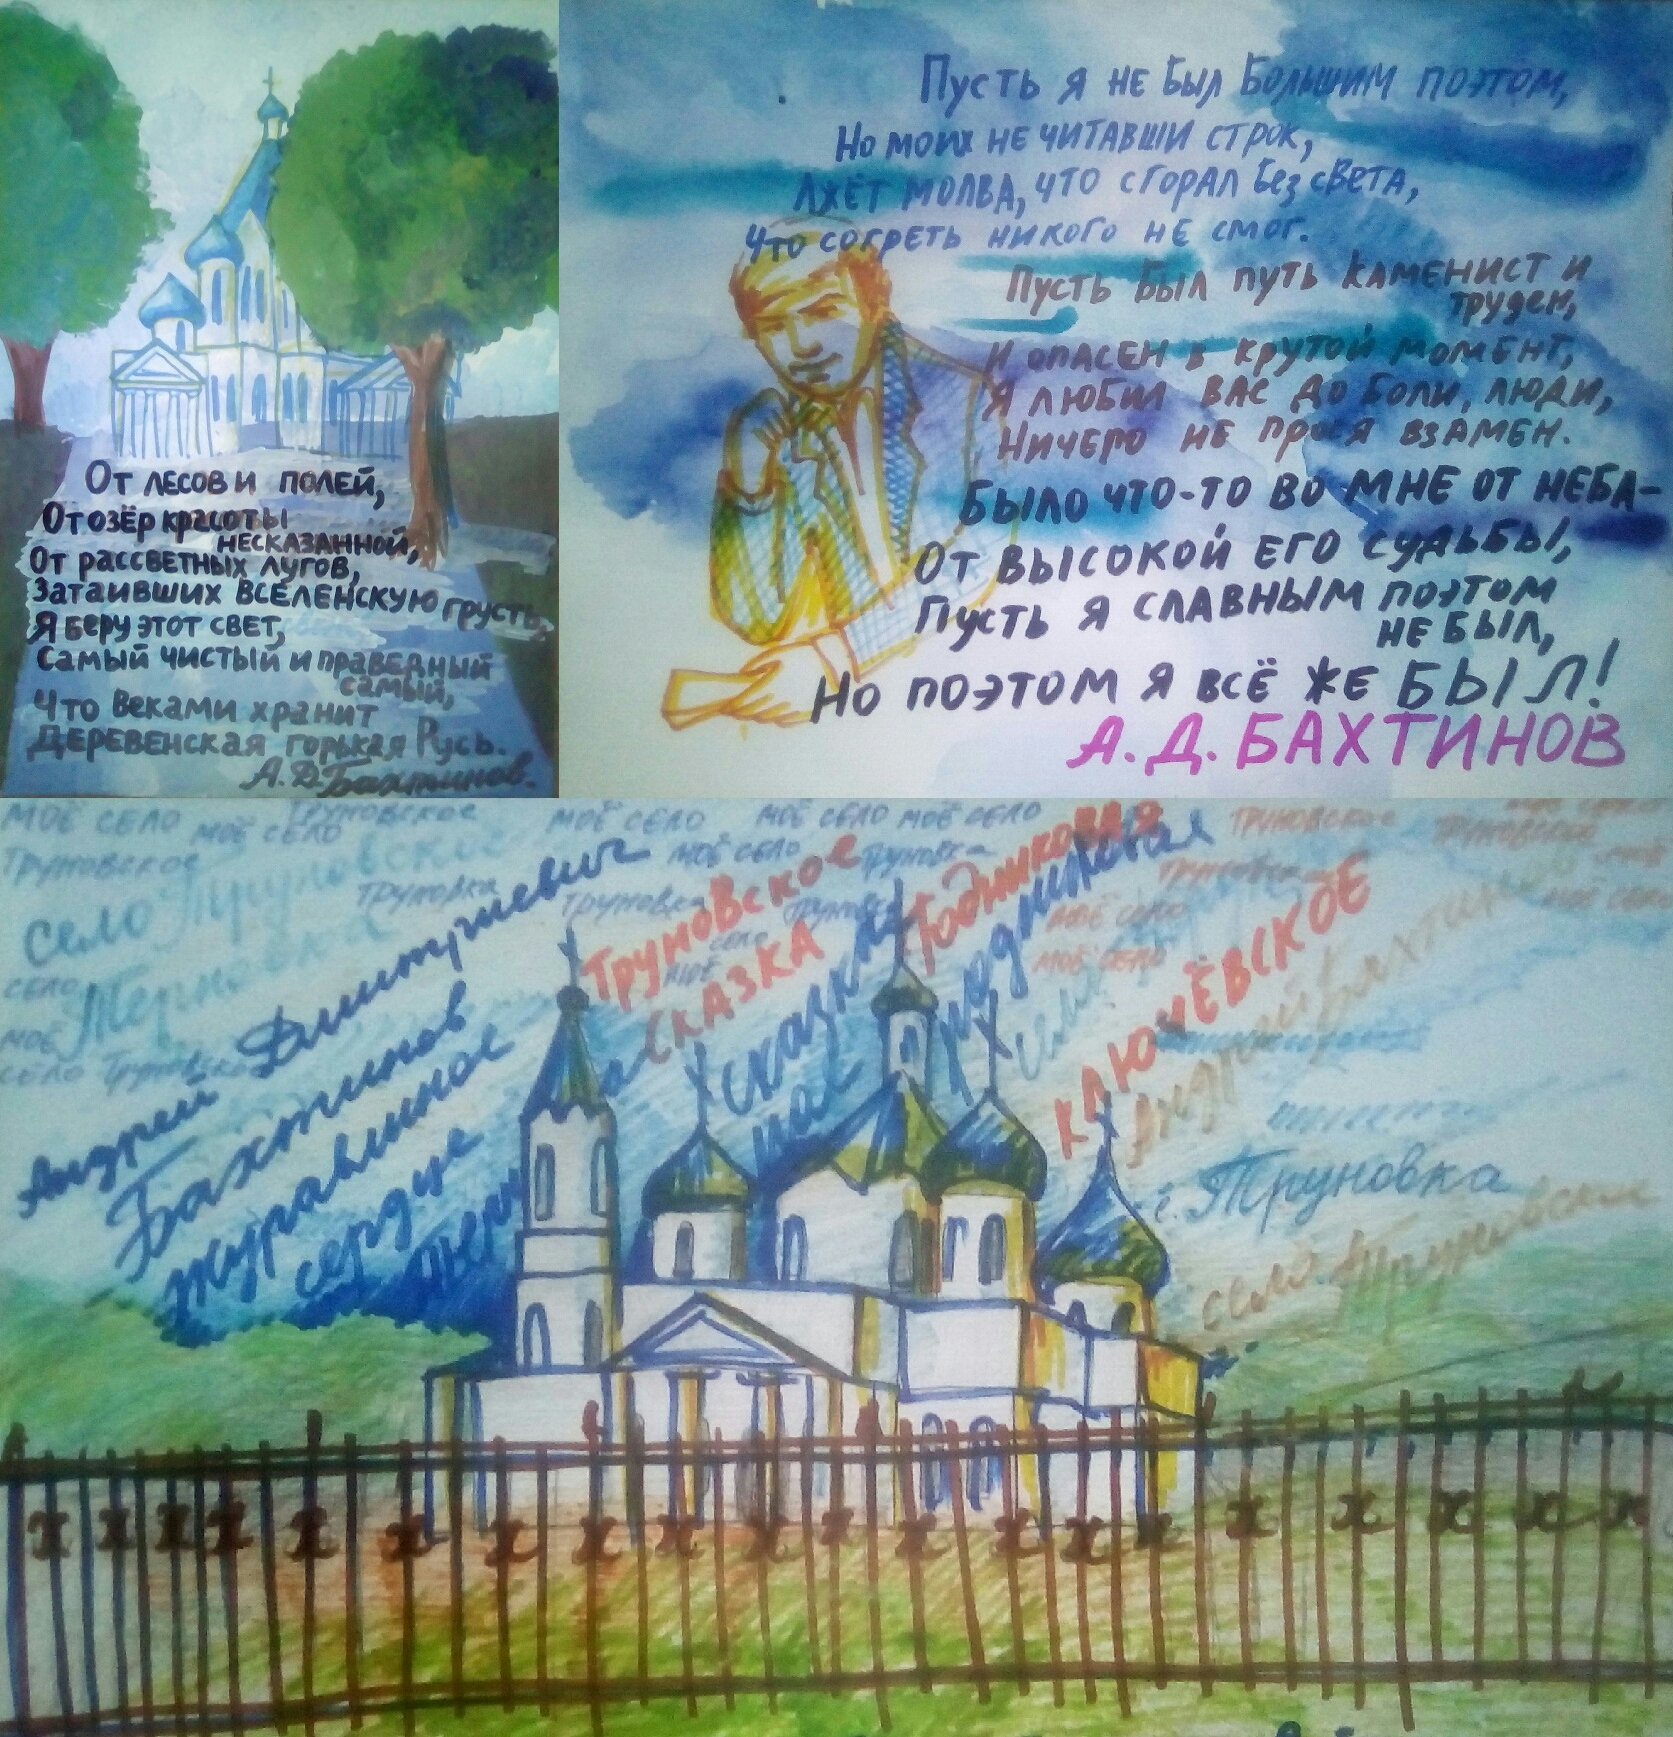 От лесов и полей,
От озёр красоты
несказанной,
От рассветных лугов,
Затаивших вселенскую грусть,
Я беру этот свет,
Самый чистый и праведный
самый,
Что веками хранит
Деревенская горькая Русь.
А.Д. Бахтинов.
Пусть я не был большим поэтом,
Но моих не читавши строк,
Лжёт молва, что сгорал без света,
Что согреть никого не смог.
Пусть был путь каменист и
труден,
И опасен в крутой момент,
Я любил вас до боли, люди,
Ничего не прося взамен.
Было что-то во мне от неба-
От высокой его судьбы,
Пусть я славным поэтом
не был,
Но поэтом я всё же БЫЛ!
А. Д. БАХТИНОВ
моё село
моё село
Труновское
моё село
моё село
моё село
Труновское
Труновское
село Труновское
Труновка
моё село
Труновка
Труновка
Труновское
моё село
моё село
Андрей Дмитриевич
Бахтинов
журавлиное
сердце
Труновское
сказка
сказка
Родниковая
родниковая
КЛЮЧЁВСКОЕ
Андрей Бахтинов
с. Труновка
село Труновское